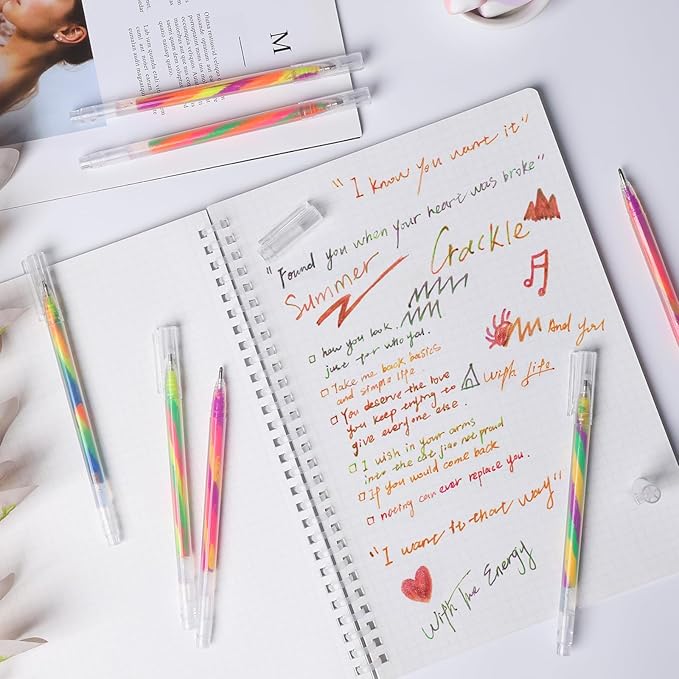 M
"I know you want it"
"Found you when your heart was broke"
Summer
Crackle
how you look.
just for who you.
Take me back basics
and simple life.
And you
With life
You deserve the love
you keep trying to
give everyone else.
I wish in your arms
into the cat jiao not proud
If you would come back
noting can ever replace you.
"I want to that way"
With The Energy